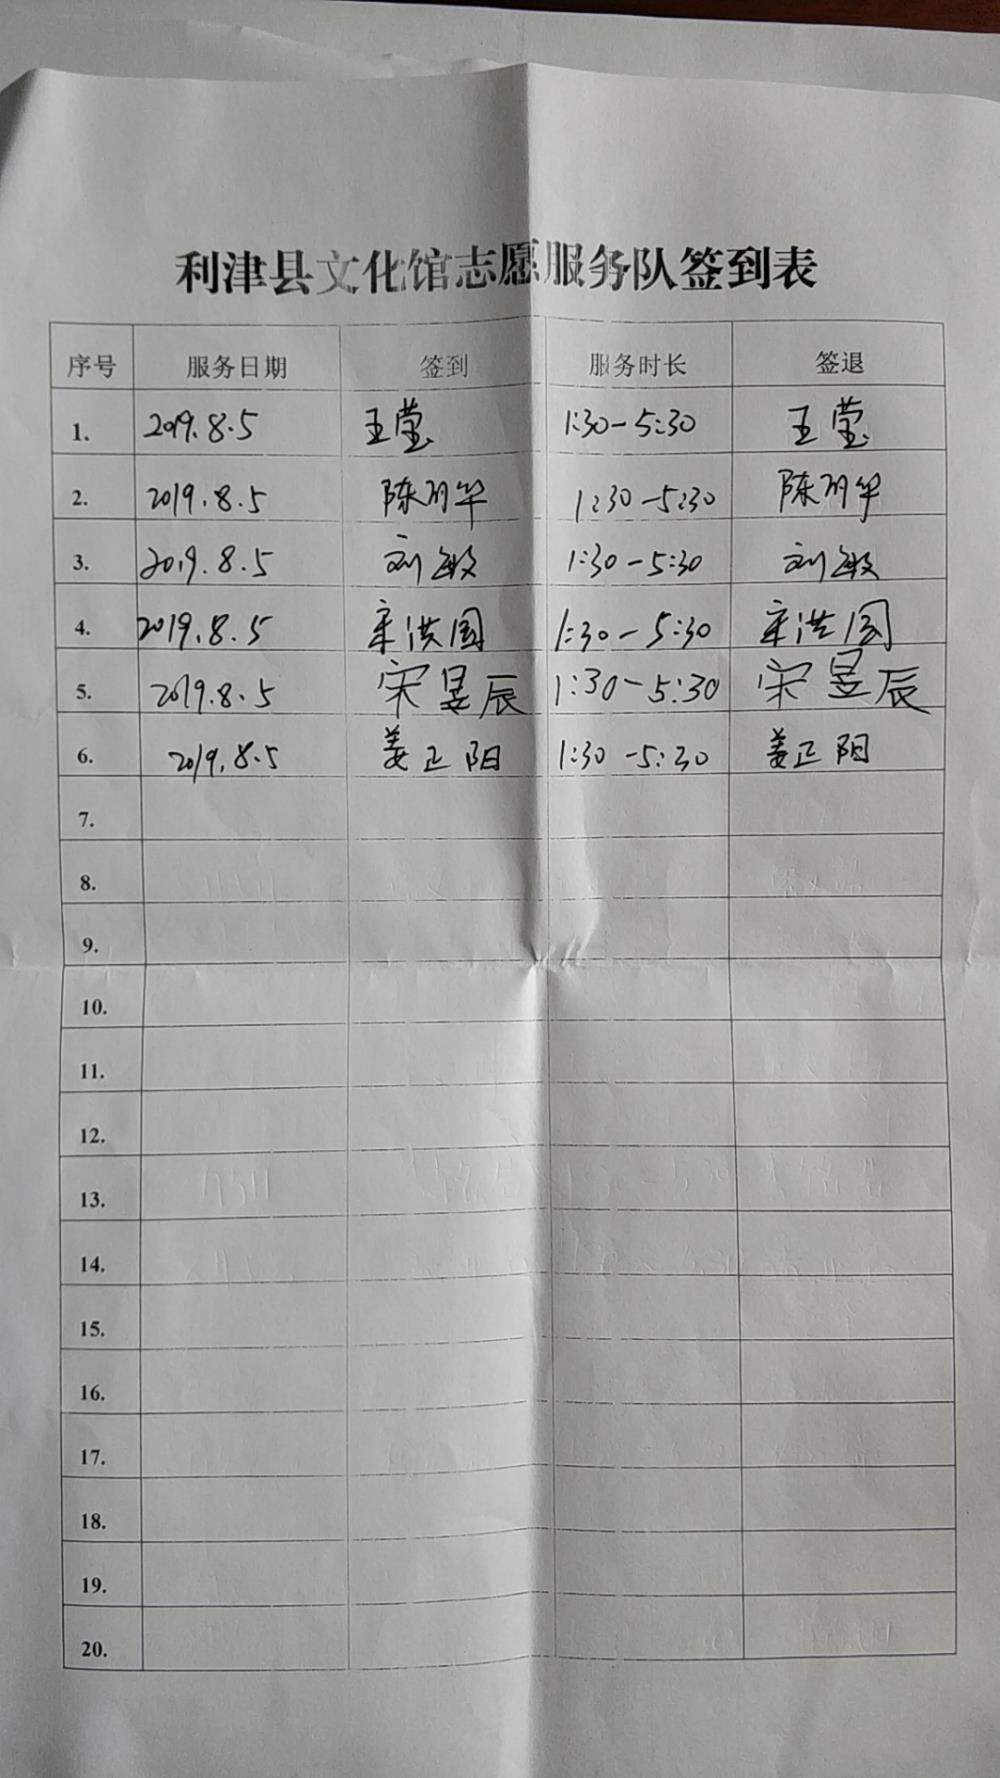 利津县文化馆志愿服务队签到表
序号 服务日期 签到 服务时长 签退
1. 2019.8.5 王莹 1:30-5:30 王莹
2. 2019.8.5 陈明华 1:30-5:30 陈明华
3. 2019.8.5 刘敏 1:30-5:30 刘敏
4. 2019.8.5 宋洪国 1:30-5:30 宋洪国
5. 2019.8.5 宋昱辰 1:30-5:30 宋昱辰
6. 2019.8.5 姜正阳 1:30-5:30 姜正阳
7.
8.
9.
10.
11.
12.
13.
14.
15.
16.
17.
18.
19.
20.